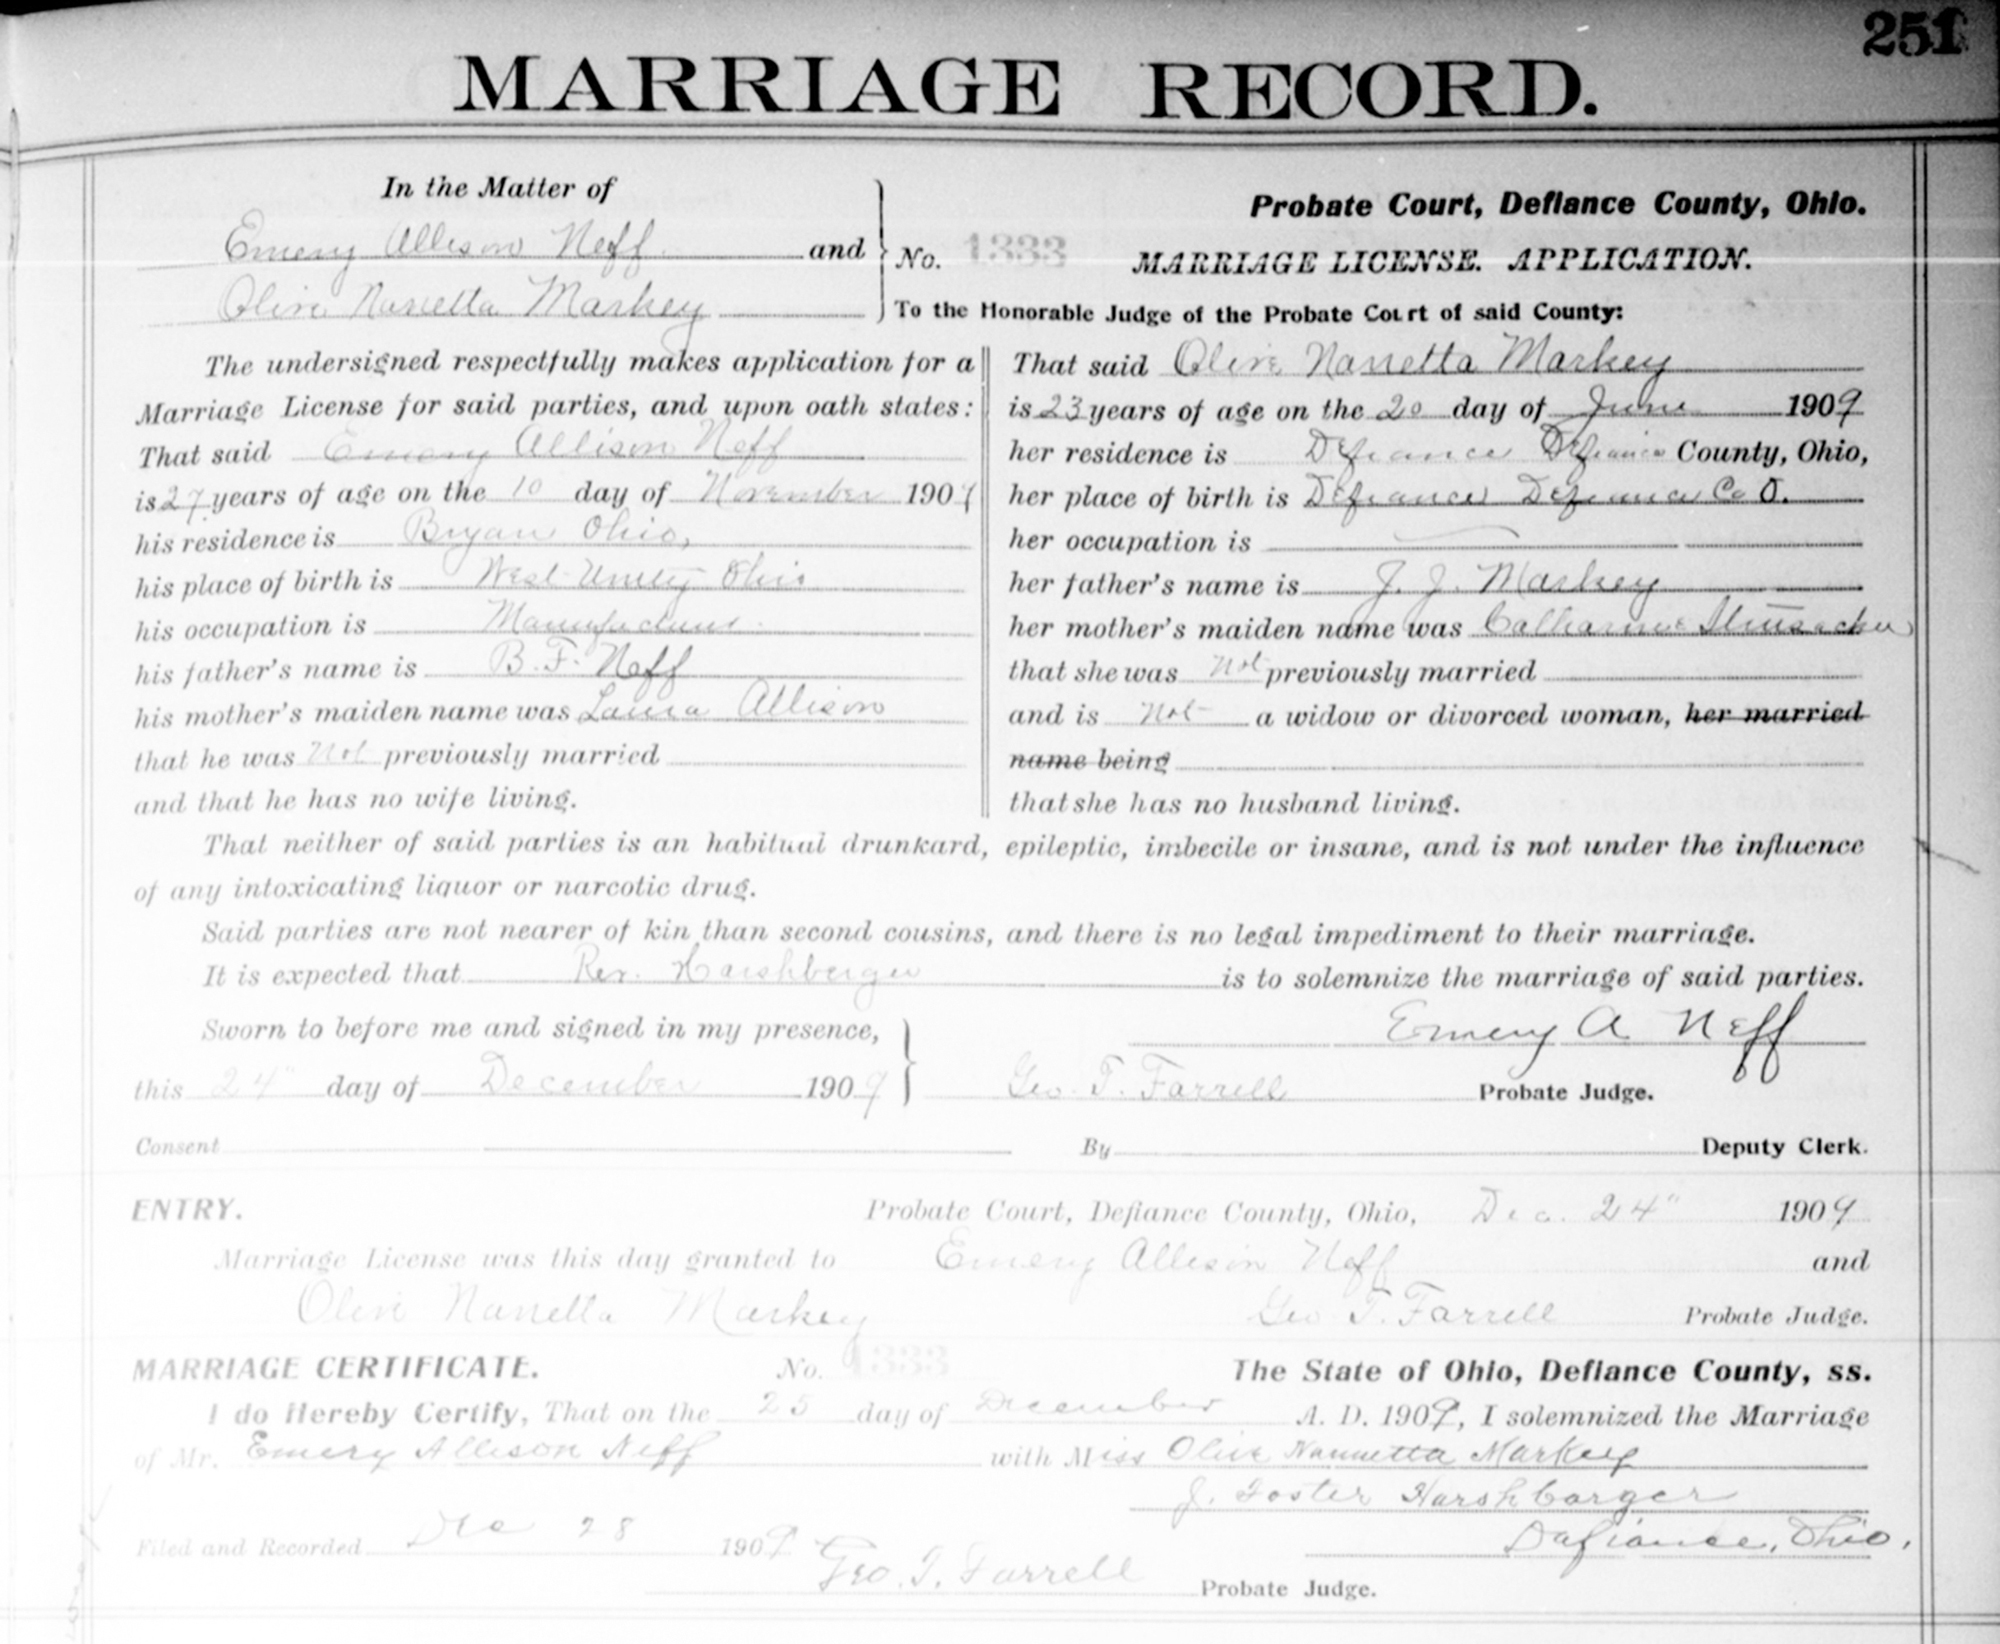 251
MARRIAGE RECORD.
In the Matter of
Emery Allison Neff and
Olive Nanetta Markey
No. 1333
Probate Court, Defiance County, Ohio.
MARRIAGE LICENSE. APPLICATION.
To the Honorable Judge of the Probate Court of said County:
The undersigned respectfully makes application for a
Marriage License for said parties, and upon oath states:
That said Emery Allison Neff
is 27 years of age on the 10 day of November 1909
his residence is Bryan Ohio,
his place of birth is West Unity Ohio
his occupation is Manufacturer.
his father's name is B. F. Neff
his mother's maiden name was Laura Allison
that he was Not previously married
and that he has no wife living.
That said Olive Nanetta Markey
is 23 years of age on the 20 day of June 1909
her residence is Defiance Defiance County, Ohio,
her place of birth is Defiance Defiance Co O.
her occupation is
her father's name is J. J. Markey
her mother's maiden name was Catharine
that she was Not previously married
and is Not a widow or divorced woman, her married
name being
that she has no husband living.
That neither of said parties is an habitual drunkard, epileptic, imbecile or insane, and is not under the influence
of any intoxicating liquor or narcotic drug.
Said parties are not nearer of kin than second cousins, and there is no legal impediment to their marriage.
It is expected that Rev. Harshberger is to solemnize the marriage of said parties.
Sworn to before me and signed in my presence,
Emery A Neff
this 24" day of December 1909
Geo. T. Farrell Probate Judge.
Consent By Deputy Clerk.
ENTRY. Probate Court, Defiance County, Ohio, Dec. 24" 1909
Marriage License was this day granted to Emery Allison Neff and
Olive Nanetta Markey Geo T. Farrell Probate Judge.
MARRIAGE CERTIFICATE. No. 1333 The State of Ohio, Defiance County, ss.
I do Hereby Certify, That on the 25 day of December A. D. 1909, I solemnized the Marriage
of Mr. Emery Allison Neff with Miss Olive Nannetta Markey
J. Foster Harshbarger
Defiance, Ohio.
Filed and Recorded Dec 28 1909 Geo. T. Farrell
Probate Judge.